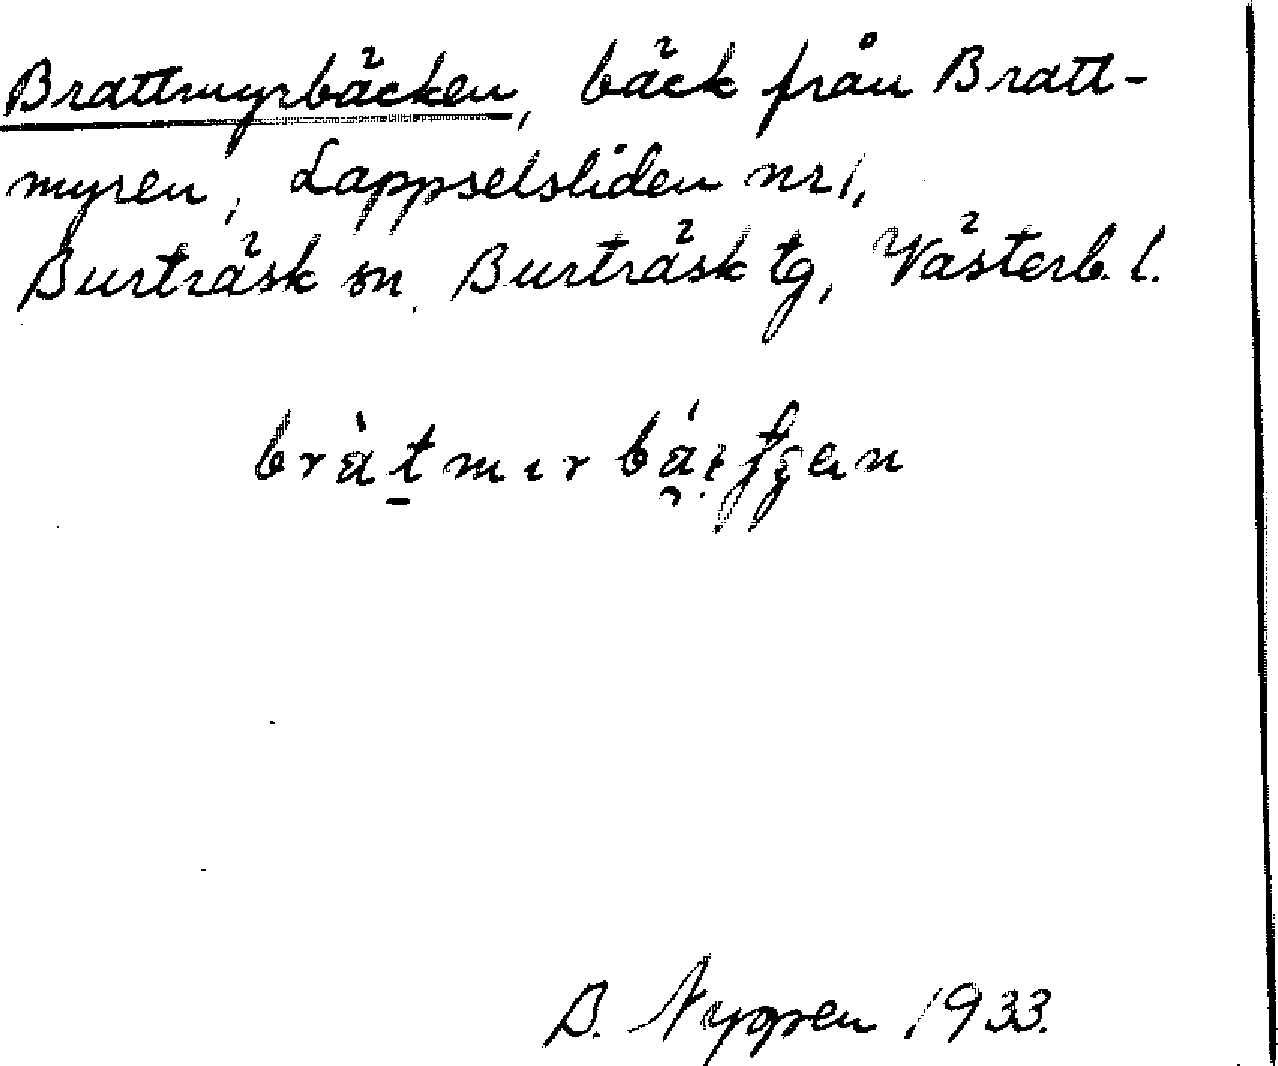 Brattmyrbäcken, bäck från Bratt-
myren, Lappselsliden nr 1,
Burträsk sn. Burträsk tg, Västerb. l.
B. Nygren 1933.